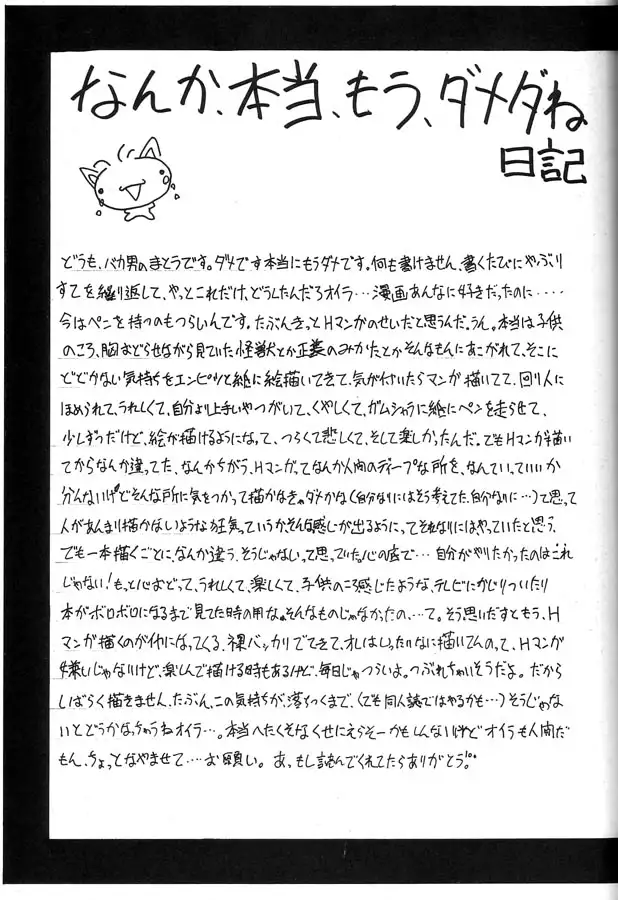 なんか、本当、もう、ダメダね
日記
どうも、バカ男のまとうです。ダメです本当にもうダメです。何も書けません、書くたびにやぶり
すてを繰り返して、やっとこれだけ、どうしたんだろオイラ…漫画あんなに好きだったのに‥‥
今はペンを持つのもつらいんです。たぶんきっとHマンガのせいだと思うんだ。うん。本当は子供
のころ、胸おどらせながら見ていた怪獣とか正義のみかたとかそんなもんにあこがれて、そこに
とどかない気持ちをエンピツと紙に絵描いてきて、気が付いたらマンガ描いてて、回り人に
ほめられて、うれしくて、自分より上手いやつがいて、くやしくて、ガムシャラに紙にペンを走らせて、
少しずつだけど、絵が描けるようになって、つらくて悲しくて、そして楽しかったんだ。でもHマンガ描い
てからなんか違ってた、なんかちがう、Hマンガってなんか人間のディープな所を、なんてい、ていいか
分んないけどそんな所に気をつかって描かなきゃダメかな(自分なりにはそう考てた、自分なりに…)て思って
人があんまり描かないような狂気っていうか、そんな感じが出るように、ってそれなりにはやっていたと思う、
でも一本描くごとに、なんか違う、そうじゃないって思っていた。心の底で…自分がやりたかったのはこれ
じゃない!もっと心おどって、うれしくて、楽しくて、子供のころ感じたような、テレビにかじりついたり
本がボロボロになるまで見てた時の用な。そんなものじゃなかったの、…て。そう思いだすともう、H
マンガ描くのがイヤになってくる、裸バッカリでてきて、オレはいったいなに描いてんのって、Hマンガ
嫌いじゃないけど、楽しんで描ける時もあるけど、毎日じゃつらいよ。つぶれちゃいそうだよ。だから
しばらく描きません、たぶん、この気持ちが、落ちつくまで、(でも同人誌ではやるかも…)そうじゃな
いとどうかなっちゃうねオイラ…。本当へたくそなくせにえらそーかもしんないけどオイラも人間だ
もん、ちょっとなやませて…お願い。あ、もし読んでくれてたらありがとう!